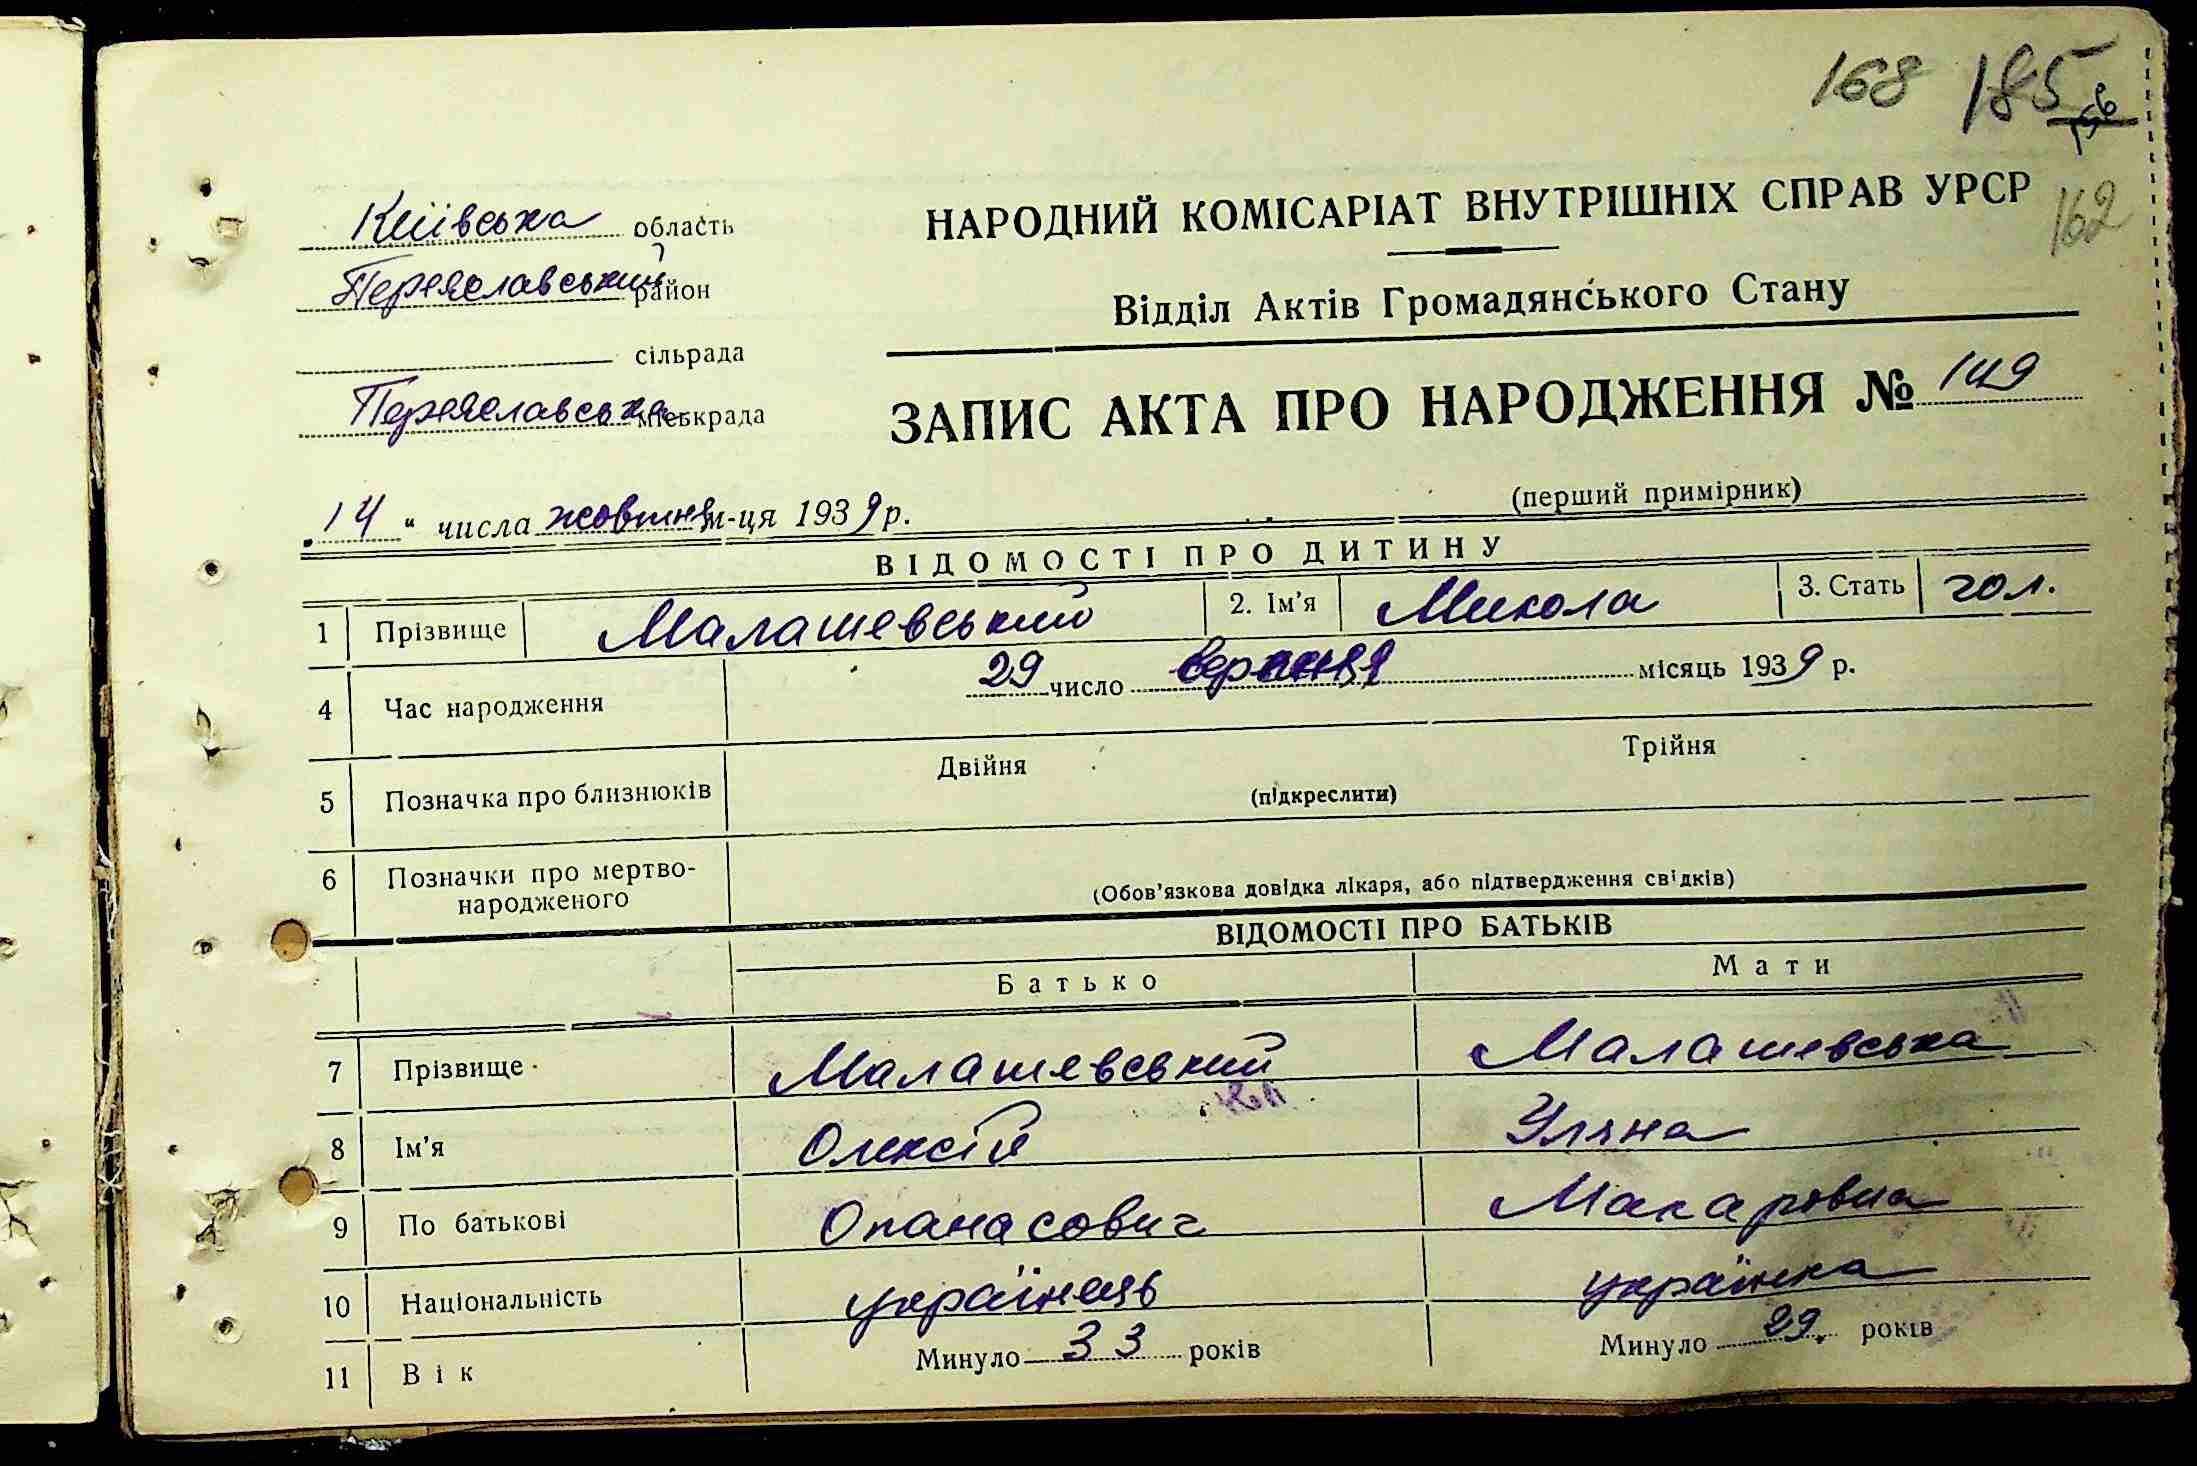 168 185
162
Київська область
Переяславський район
сільрада
Переяславська міськрада
НАРОДНИЙ КОМІСАРІАТ ВНУТРІШНІХ СПРАВ УРСР
Відділ Актів Громадянського Стану
ЗАПИС АКТА ПРО НАРОДЖЕННЯ № 149
(перший примірник)
„14“ числа жовтня м-ця 1939 р.
ВІДОМОСТІ ПРО ДИТИНУ
1 Прізвище Малашевський 2. Ім’я Микола 3. Стать чол.
4 Час народження 29 число вересня місяць 1939 р.
5 Позначка про близнюків Двійня Трійня
(підкреслити)
6 Позначки про мертво-
народженого
(Обов’язкова довідка лікаря, або підтвердження свідків)
ВІДОМОСТІ ПРО БАТЬКІВ
Батько Мати
7 Прізвище Малашевський Малашевська
8 Ім’я Олексій Уляна
9 По батькові Опанасович Макаровна
10 Національність українець українка
11 Вік Минуло 33 років Минуло 29 років